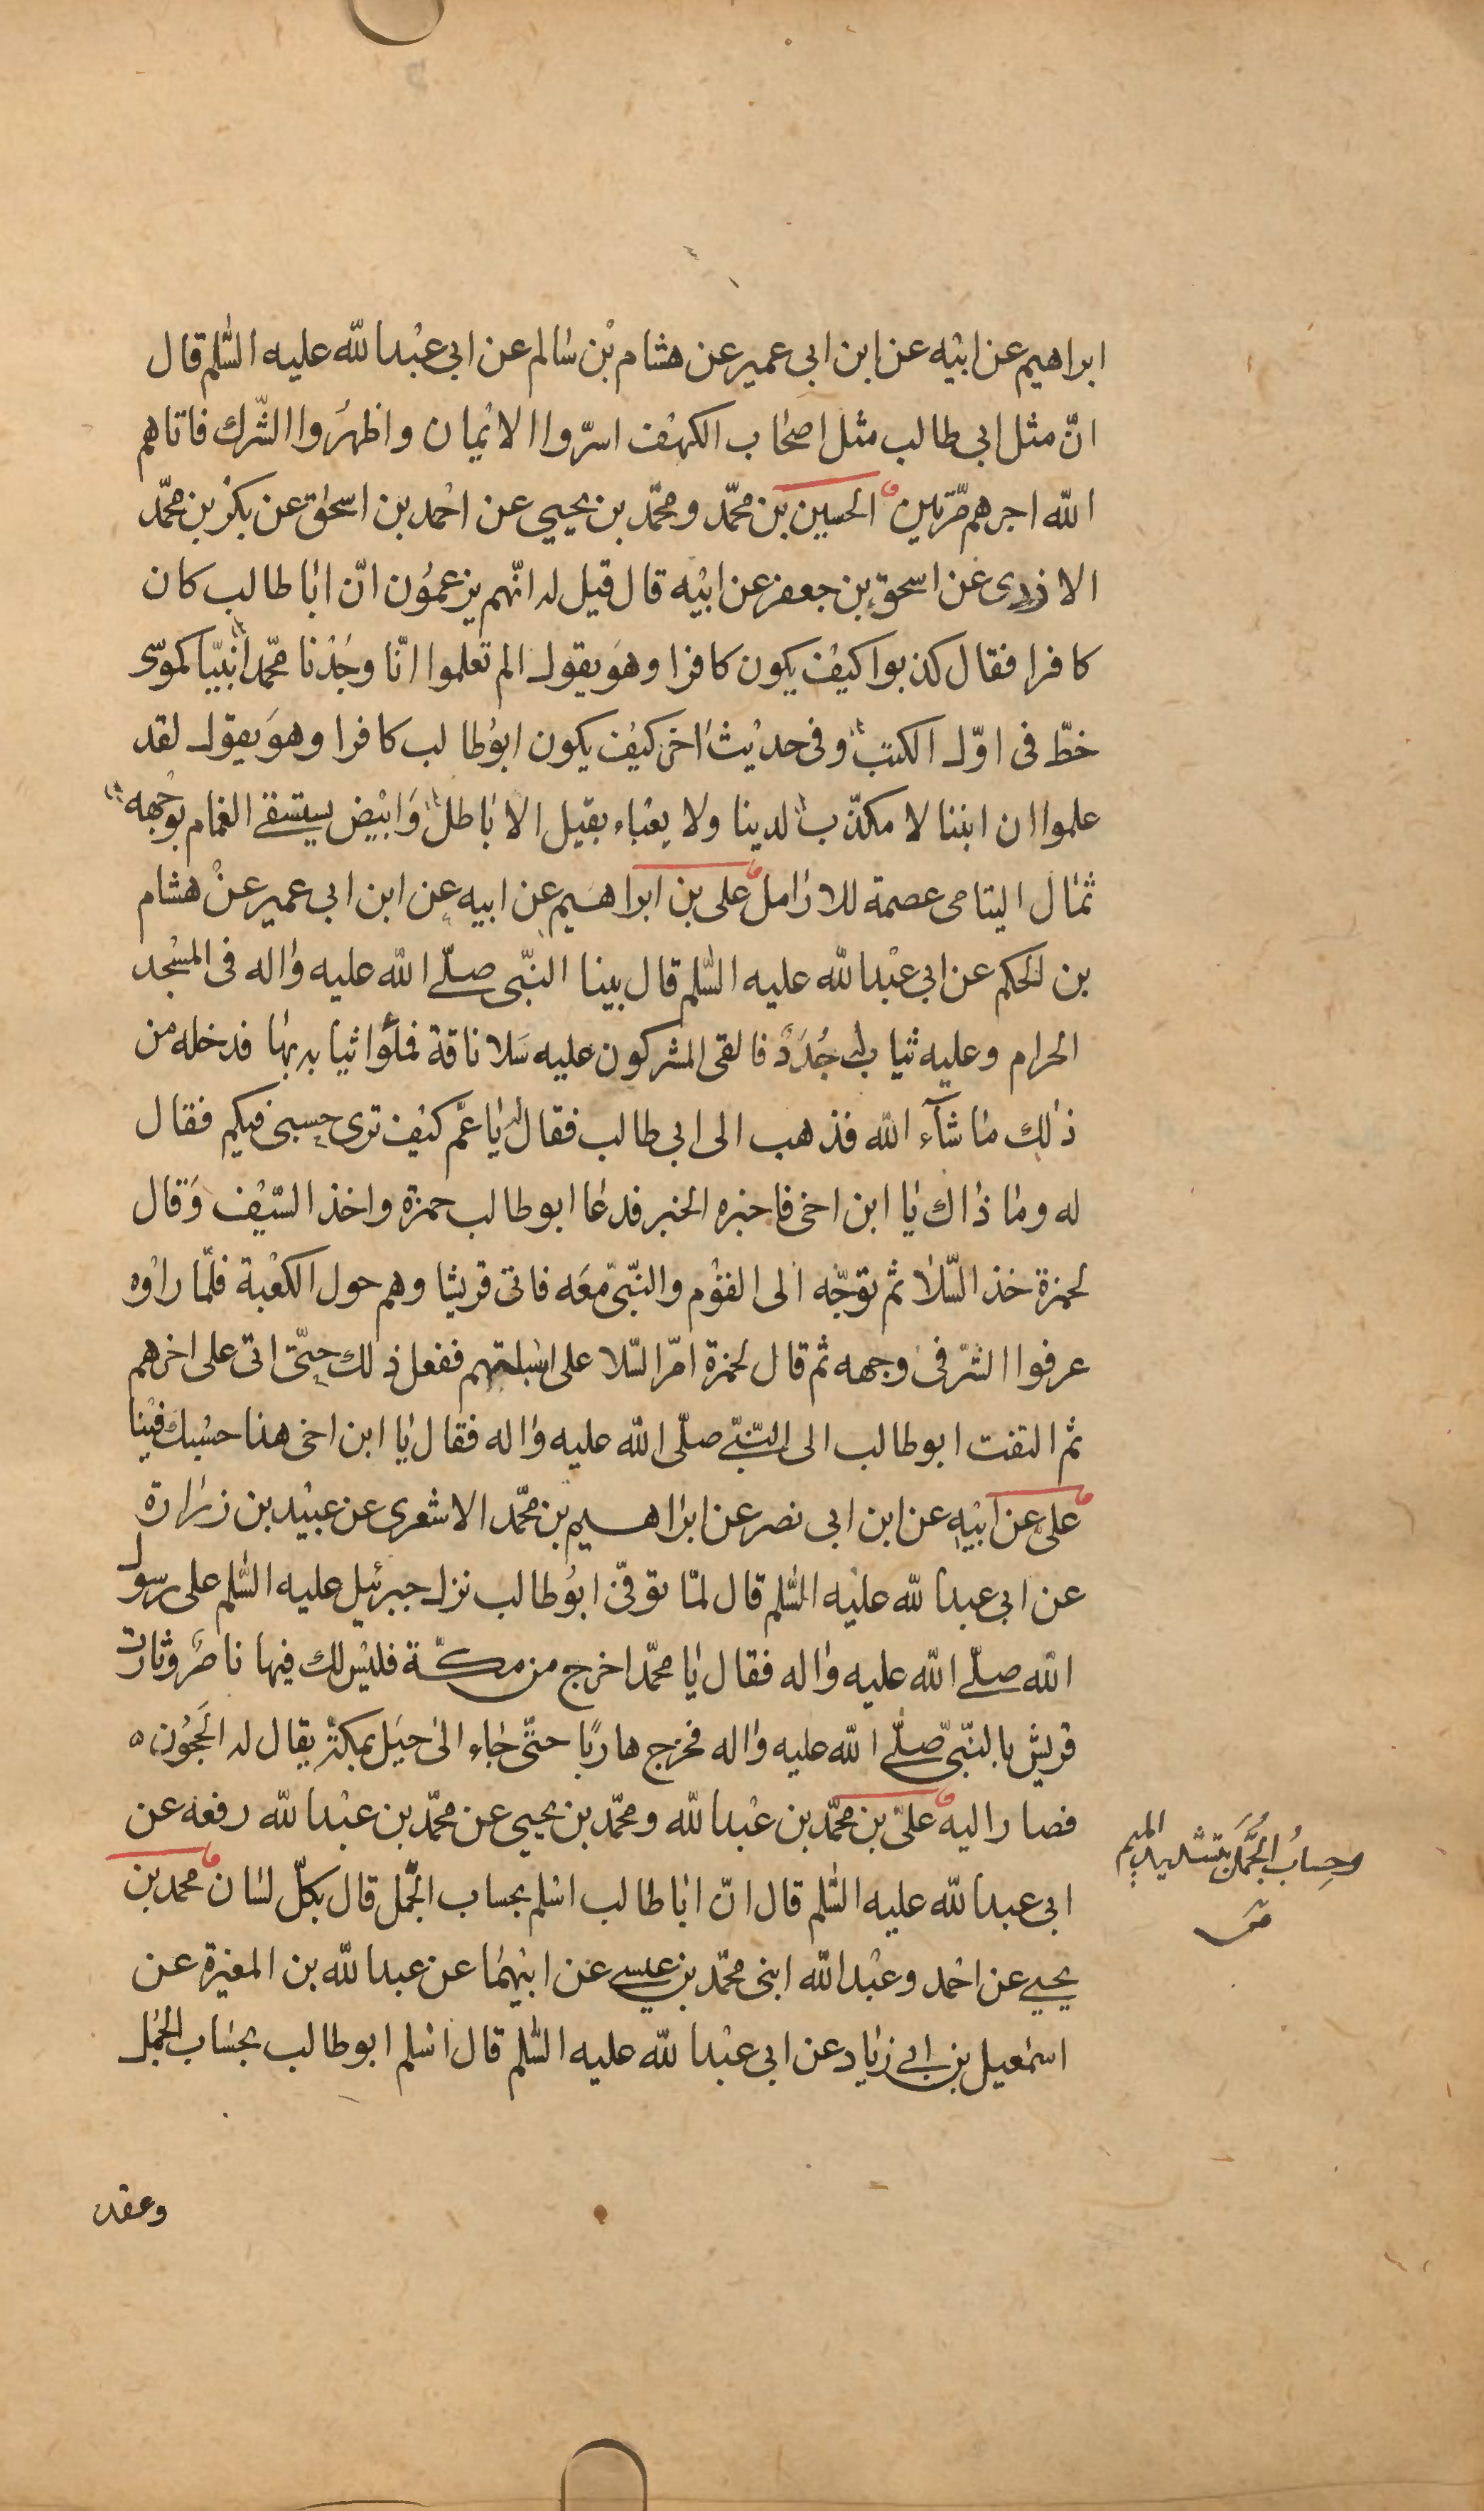 ابراهيم عن ابيه عن ابن ابى عمير عن هشام بن سالم عن ابى عبدالله عليه السّلم قال
انّ مثل ابى طالب مثل اصحاب الكهف اسرّوا الايمان واظهرُوا الشّرك فاتاهم
الله اجرهم مّرتين الحسين بن محمّد ومحمّد بن يحيي عن احمد بن اسحٰق عن بكر بن محمّد
الازدى عن اسحق بن جعفر عن ابيه قال قيل له انّهم يزعمُون انّ ابا طالب كان
كافرا فقال كذبوا كيف يكون كافرا وهوَ يقول الم تعلموا انّا وجَدْنا محمّدا نبيّا كموسى
خطّ فى اوّل الكتب وفى حديث اخر كيف يكون ابوُ طالب كافرا وهوَ يقول لقد
علموا ان ابننا لا مكذّب لدينا ولا يعباء بقيل الاباطل وَابيض يستسقے الغمام بوَجهه
ثمال اليتامى عصمة للارامل على بن ابراهيم عن ابيه عن ابن ابى عمير عنْ هشام
بن الحكم عن ابى عبدالله عليه السّلم قال بينا النّبى صلّے الله عليه واله فى المسْجد
الحرام وعليه ثياب له جُدَدٌ فالقى المشركون عليه سَلا ناقة فملؤا ثيابه بها فدخله من
ذلك ما شآء الله فذهب الى ابى طالب فقال له يا عَمّ كيف ترى حسبى فيكم فقال
له وما ذاك يا ابن اخى فاخبره الخبر فدعا ابو طالب حمزة واخذ السّيف وَقال
لحمزة خذ السّلا ثم توجّه الى القوْم والنّبىّ معَه فاتى قريشا وهم حول الكعْبة فلمّا راوْه
عرفوا الشّر فى وجهه ثم قال لحمزة امّر السّلا على اسبلتهم ففعل ذلك حتّى اتى على اخرهم
ثم التفت ابو طالب الى النّبىّ صلّى الله عليه واله فقال يا ابن اخى هذا حسْبك فينا
على عن ابيه عن ابن ابى نصر عن ابراهيم بن محمّد الاشعرى عن عبيْد بن زرارة
عن ابى عبدالله عليه السّلم قال لمّا توفّى ابوُ طالب نزل جبرئيل عليه السّلم على رسول
الله صلّے الله عليه واله فقال يا محمّد اخرج من مكّة فليْس لك فيها ناصرٌ وثارت
قريش بالنّبىّ صلّے الله عليه واله فخرج هاربًا حتّى جاء الى جبَل بمكّة يقال له الحَجُون ه
فصار اليه علىّ بن محمّد بن عبْدالله ومحمّد بن يحيى عن محمّد بن عبْدالله رفعه عن
ابى عبدالله عليه السّلم قال انّ ابا طالب اسْلم بحساب الجُمّل قال بكلّ لسان محمد بن
يحيے عن احمد وعبْدالله ابنى محمّد بن عيسے عن ابيهما عن عبدالله بن المغيرة عن
اسمعيل بن ابے زياد عن ابى عبْدالله عليه السّلم قال اسْلم ابو طالب بحساب الجُمل
وحِسابُ الجُمَّل بتشديد الميم
وعقد